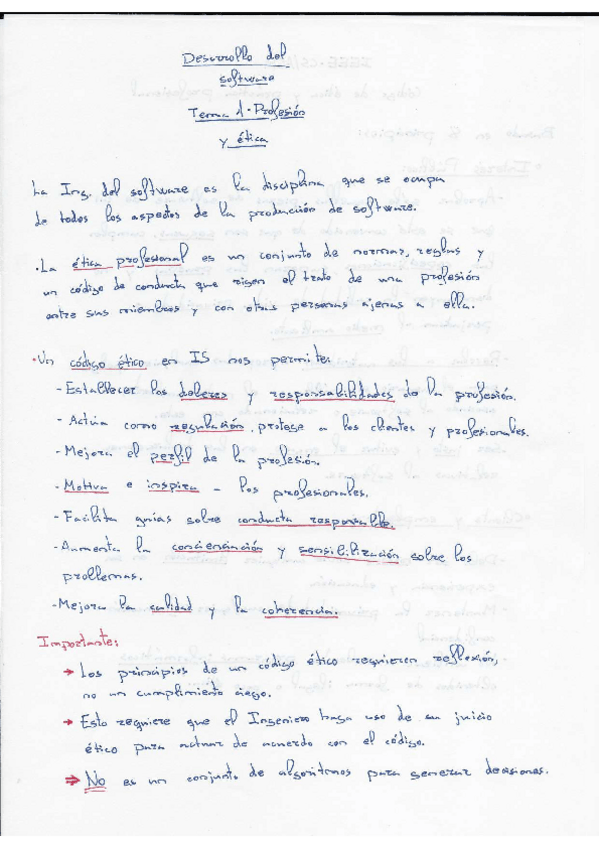 Desarrollo del
software
Tema 1. Profesión
y ética
La Ing. del software es la disciplina que se ocupa
de todos los aspectos de la producción de software.
· La ética profesional es un conjunto de normas, reglas y
un código de conducta que rigen el trato de una profesión
entre sus miembros y con otras personas ajenas a ella.
· Un código ético en IS nos permite:
- Establecer los deberes y responsabilidades de la profesión.
- Actúa como regulación, protege a los clientes y profesionales.
- Mejora el perfil de la profesión.
- Motiva e inspira - los profesionales.
- Facilita guías sobre conducta responsable.
- Aumenta la concienciación y sensibilización sobre los
problemas.
- Mejora la calidad y la coherencia.
Importante:
→ Los principios de un código ético requieren reflexión,
no un cumplimiento ciego.
→ Esto requiere que el Ingeniero haga uso de su juicio
ético para actuar de acuerdo con el código.
⇒ No es un conjunto de algoritmos para generar decisiones.